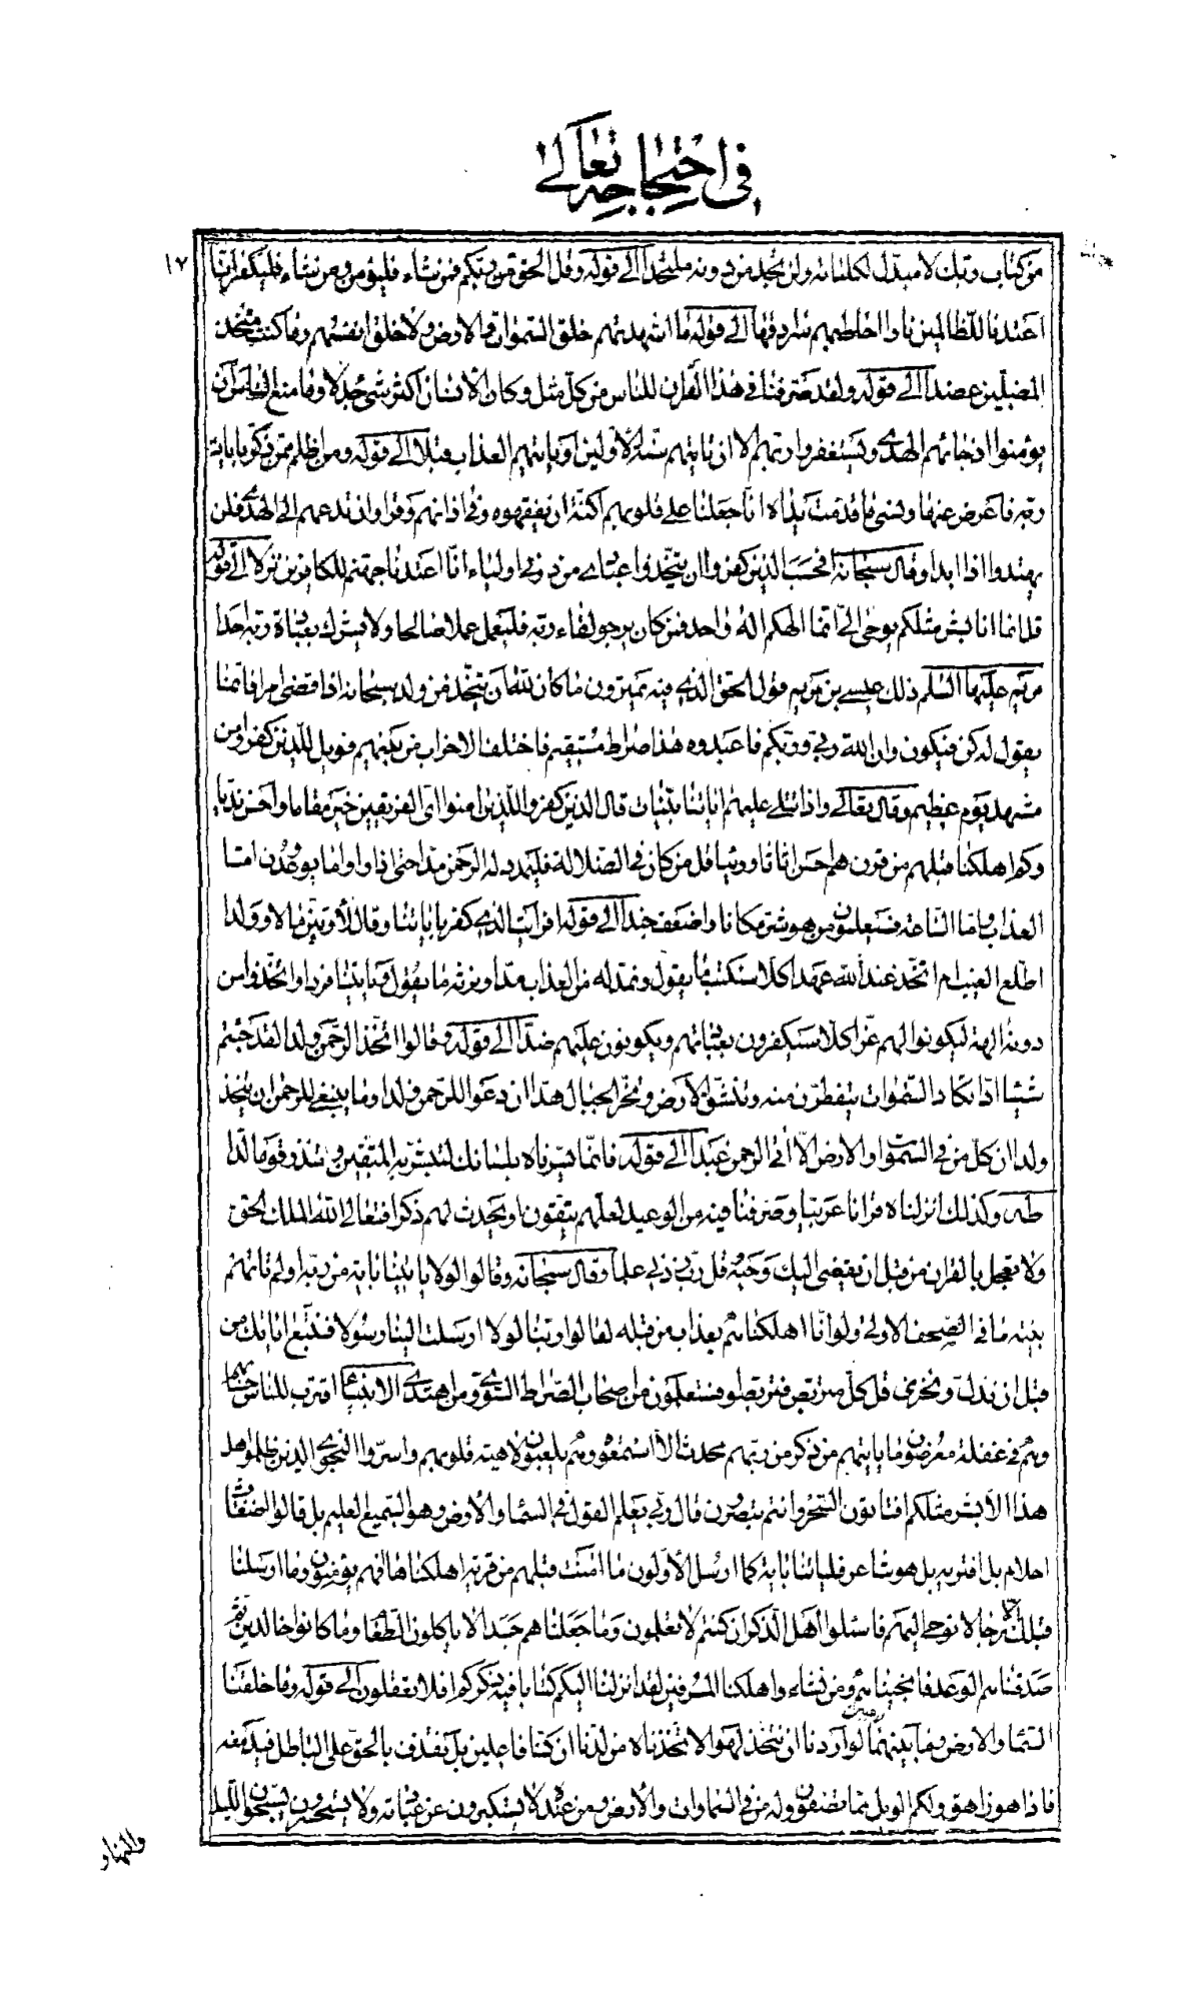 في احتجاجه تعالى
١٧
من كتاب ربك لا مبدل لكلماته ولن تجد من دونه ملتحدا إلى قوله وقل الحق من ربكم فمن شاء فليؤمن ومن شاء فليكفر انا
اعتدنا للظالمين نارا احاط بهم سرادقها إلى قوله ما اشهدتهم خلق السموات والارض ولا خلق انفسهم وما كنت متخذ
المضلين عضدا إلى قوله ولقد صرفنا في هذا القران للناس من كل مثل وكان الانسان اكثر شئ جدلا وما منع الناس ان
يؤمنوا اذ جائهم الهدى ويستغفروا ربهم الا ان تاتيهم سنة الاولين او ياتيهم العذاب قبلا إلى قوله ومن اظلم ممن ذكر بايات
ربه فاعرض عنها ونسى ما قدمت يداه انا جعلنا على قلوبهم اكنة ان يفقهوه وفي اذانهم وقرا وان تدعهم الى الهدى فلن
يهتدوا اذا ابدا وقال سبحانه افحسب الذين كفروا ان يتخذوا عبادى من دونى اولياء انا اعتدنا جهنم للكافرين نزلا إلى قوله
قل انما انا بشر مثلكم يوحى الى انما الهكم اله واحد فمن كان يرجو لقاء ربه فليعمل عملا صالحا ولا يشرك بعبادة ربه احدا
مريم عليها السلم ذلك عيسى بن مريم قول الحق الذى فيه يمترون ما كان لله ان يتخذ من ولد سبحانه اذا قضى امرا فانما
يقول له كن فيكون وان الله ربى وربكم فاعبدوه هذا صراط مستقيم فاختلف الاحزاب من بينهم فويل للذين كفروا من
مشهد يوم عظيم وقال تعالى واذا تتلى عليهم اياتنا بينات قال الذين كفروا للذين امنوا اى الفريقين خير مقاما واحسن نديا
وكم اهلكنا قبلهم من قرن هم احسن اثاثا ورئيا قل من كان في الضلالة فليمدد له الرحمن مدا حتى اذا راوا ما يوعدون اما
العذاب واما الساعة فسيعلمون من هو شر مكانا واضعف جندا إلى قوله افرايت الذى كفر باياتنا وقال لأوتين مالا وولدا
اطلع الغيب ام اتخذ عند الله عهدا كلا سنكتب ما يقول ونمد له من العذاب مدا ونرثه ما يقول وياتينا فردا واتخذوا من
دونه الهة ليكونوا لهم عزا كلا سيكفرون بعبادتهم ويكونون عليهم ضدا إلى قوله وقالوا اتخذ الرحمن ولدا لقد جئتم
شيئا ادا تكاد السموات يتفطرن منه وتنشق الارض وتخر الجبال هدا ان دعوا للرحمن ولدا وما ينبغى للرحمن ان يتخذ
ولدا ان كل من في السموات والارض الا اتى الرحمن عبدا إلى قوله فانما يسرناه بلسانك لتبشر به المتقين وتنذر به قوما لدا
طه وكذلك انزلناه قرانا عربيا وصرفنا فيه من الوعيد لعلهم يتقون او يحدث لهم ذكرا فتعالى الله الملك الحق
ولا تعجل بالقران من قبل ان يقضى اليك وحيه قل رب زدنى علما وقال سبحانه وقالوا لولا ياتينا باية من ربه اولم تاتهم
بينة ما في الصحف الاولى ولو انا اهلكناهم بعذاب من قبله لقالوا ربنا لولا ارسلت الينا رسولا فنتبع اياتك من
قبل ان نذل ونخزى قل كل متربص فتربصوا فستعلمون من اصحاب الصراط السوى ومن اهتدى الانبياء اقترب للناس حسابهم
وهم في غفلة معرضون ما ياتيهم من ذكر من ربهم محدث الا استمعوه وهم يلعبون لاهية قلوبهم واسروا النجوى الذين ظلموا هل
هذا الا بشر مثلكم افتاتون السحر وانتم تبصرون قال ربى يعلم القول في السماء والارض وهو السميع العليم بل قالوا اضغاث
احلام بل افتريه بل هو شاعر فلياتنا باية كما ارسل الاولون ما امنت قبلهم من قرية اهلكناها افهم يؤمنون وما ارسلنا
قبلك الا رجالا نوحى اليهم فاسئلوا اهل الذكر ان كنتم لا تعلمون وما جعلناهم جسدا لا ياكلون الطعام وما كانوا خالدين ثم
صدقناهم الوعد فانجيناهم ومن نشاء واهلكنا المسرفين لقد انزلنا اليكم كتابا فيه ذكركم افلا تعقلون إلى قوله وما خلقنا
السماء والارض وما بينهما لاعبين لو اردنا ان نتخذ لهوا لاتخذناه من لدنا ان كنا فاعلين بل نقذف بالحق على الباطل فيدمغه
فاذا هو زاهق ولكم الويل مما تصفون وله من في السماوات والارض ومن عنده لا يستكبرون عن عبادته ولا يستحسرون يسبحون الليل
والنهار